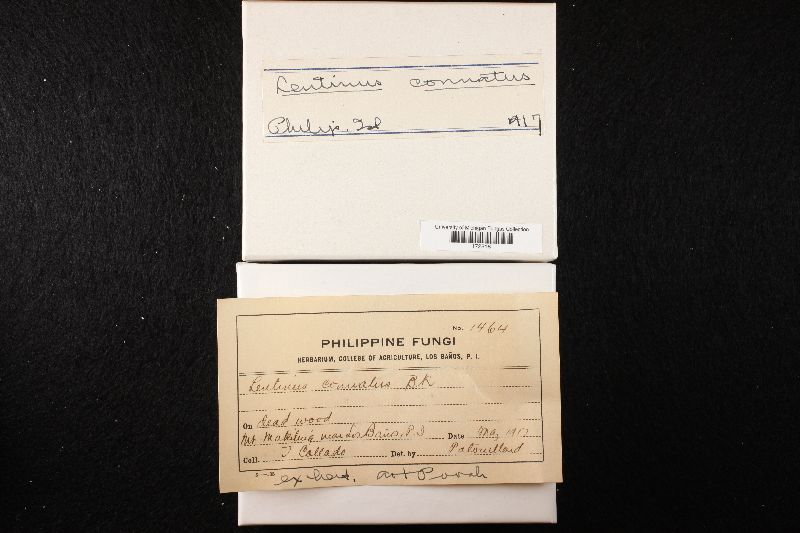 Lentinus connatus
Philip. Isl 1917
University of Michigan Fungus Collection
No. 1464
PHILIPPINE FUNGI
HERBARIUM, COLLEGE OF AGRICULTURE, LOS BAÑOS, P. I.
Lentinus connatus Bk
On Dead wood
Mt Makiling near Los Baños, P. I Date 1917
Coll. J Collado Det. by Patouillard
ex herb.